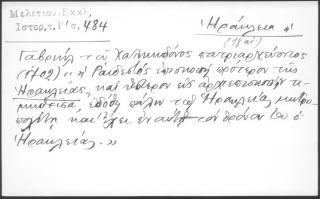 Μελετίου. Εκκλ.
Ιστορ. τ. Γ'σ. 484
Ἡράκλεια
Γαβριὴλ τοῦ Χαλκηδόνος πατριαρχεύοντος
(1702) "ἡ Ραιδεστὸς ἐπισκοπὴ πρότερον τῆς
Ἡρακλείας, καὶ ὕστερον εἰς ἀρχιεπισκοπὴν τι-
μηθεῖσα, ἐδόθη πάλιν τῷ Ἡρακλείας μητρο-
πολίτῃ καὶ ἔχει ἐν αὐτῇ τὸν θρόνον του ὁ
Ἡρακλείας."